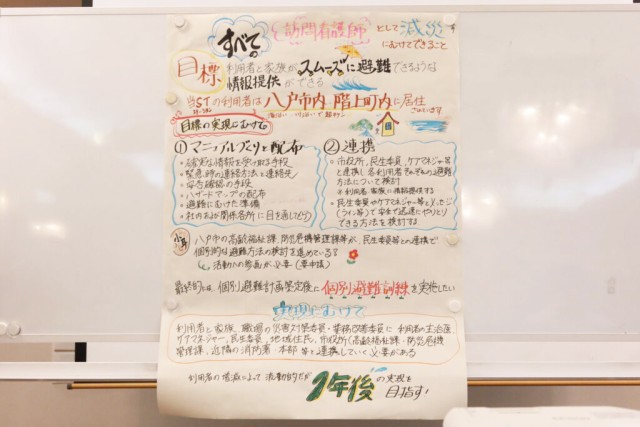 すべての訪問看護師として減災
にむけてできること
目標 利用者と家族がスムーズに避難できるような
情報提供ができる
当STの利用者は八戸市内 階上町内に居住
目標の実現にむけて
① マニュアルづくりと配布
・確実な情報を受け取る手段
・緊急時の連絡方法と連絡先
・安否確認の手段
・ハザードマップの配布
・避難にむけた準備
・社内および関係各所に目を通してもらう
② 連携
・市役所、民生委員、ケアマネジャー等
と連携し各利用者それぞれの避難
方法について検討
※利用者・家族に情報提供する
・民生委員やケアマネジャー等と
(ライン等)で安全で迅速にやりとり
できる方法を検討する
八戸市の高齢福祉課、防災危機管理課等が、民生委員等との連携で
個別的な避難方法の検討を進めている?
活動への参画が必要(要申請)
最終的には、個別避難計画策定後に個別避難訓練を実施したい
実現にむけて
利用者と家族、職場の災害対策委員・業務改善委員に利用者の主治医
ケアマネジャー、民生委員、地域住民、市役所(高齢福祉課・防災危機
管理課、近隣の消防署・本部等と連携していく必要がある
利用者の増減によって流動的だが 1年後の実現を
目指す!